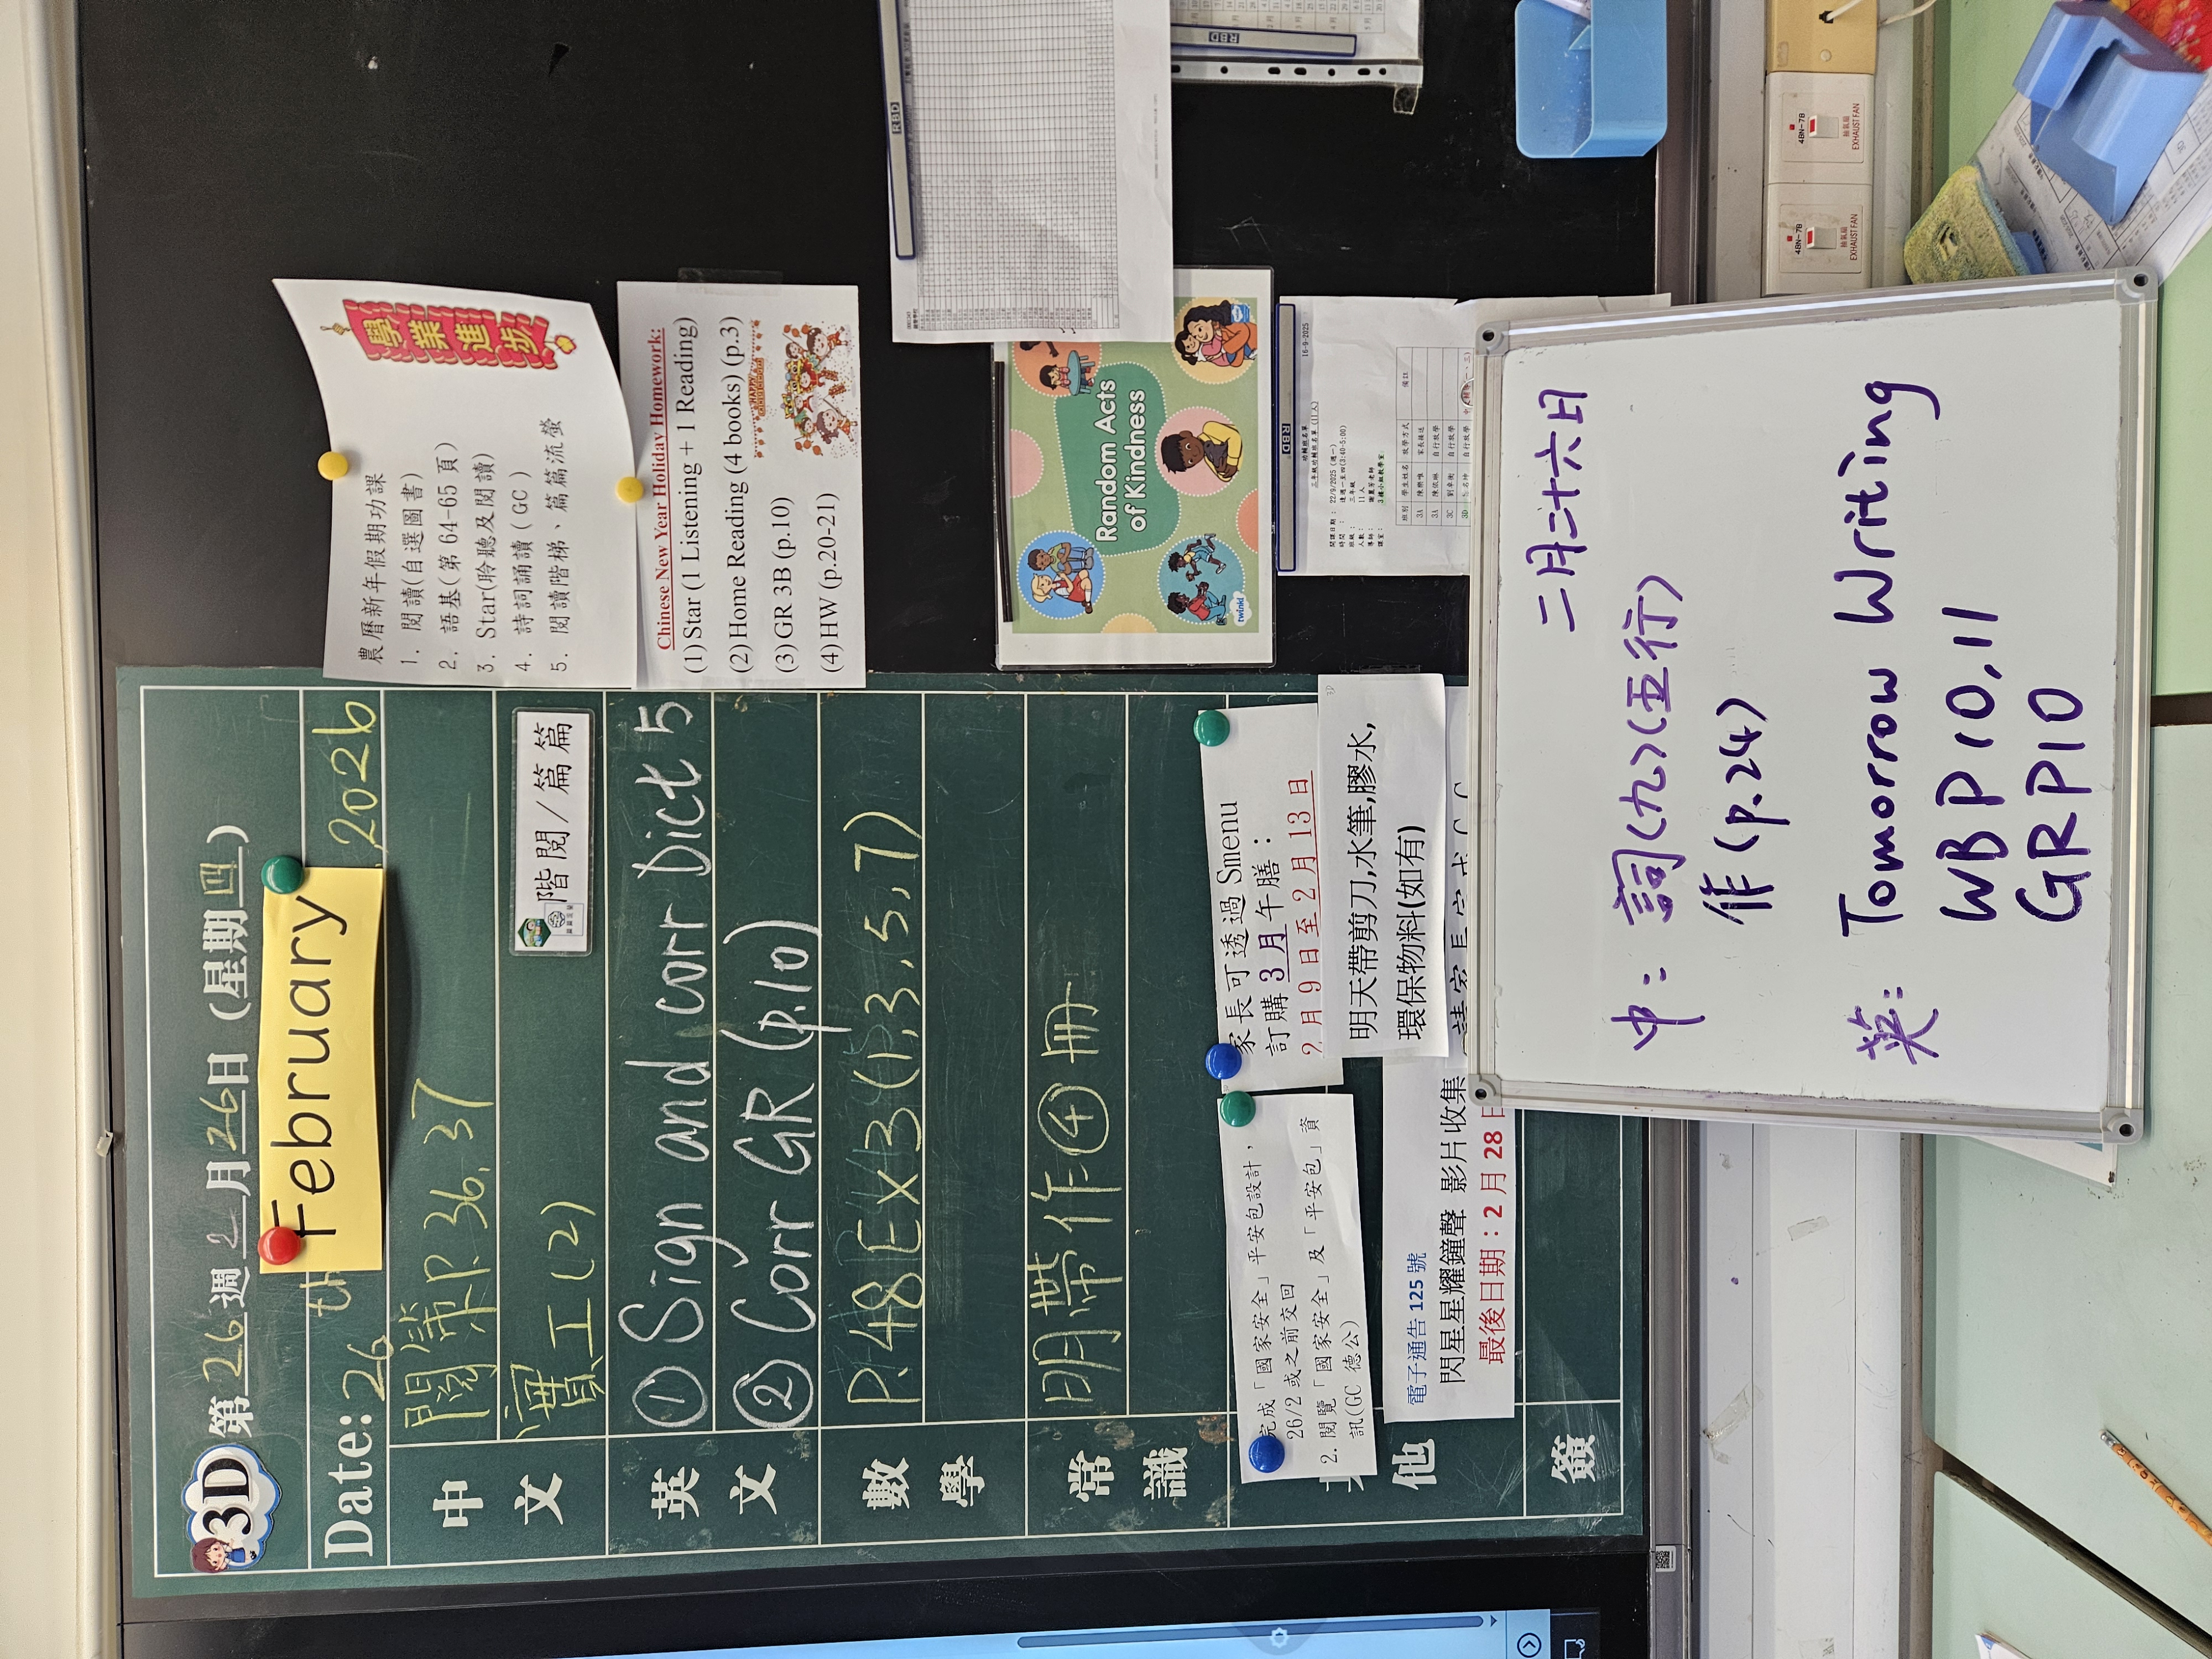 3D 第26週2月26日(星期四)
Date: 26th February 2026
中文
閱第P.36,37
實工(2)
階閱/篇篇
英文
①Sign and corr Dict 5
②Corr GR (p.10)
數學
P.48Ex3(1,3,5,7)
常識
明帶作④冊
他
完成「國家安全」平安包設計,
26/2 或之前交回
2. 閱覽「國家安全」及「平安包」資
訊(GC 德公)
家長可透過 Smenu
訂購 3月 午膳:
2月9日至2月13日
明天帶剪刀,水筆,膠水,
環保物料(如有)
電子通告 125 號
閃星星耀鐘聲 影片收集
最後日期:2月28日
簽
農曆新年假期功課
1. 閱讀(自選圖書)
2. 語基(第 64-65 頁)
3. Star(聆聽及閱讀)
4. 詩詞誦讀(GC)
5. 閱讀階梯、篇篇流螢
學業進步
Chinese New Year Holiday Homework:
(1) Star (1 Listening + 1 Reading)
(2) Home Reading (4 books) (p.3)
(3) GR 3B (p.10)
(4) HW (p.20-21)
Random Acts
of Kindness
twinkl
RBD
RBD
RBD
16-9-2025
二月二十六日
中: 詞(九)(五行)
作(p.24)
英: Tomorrow Writing
WB P10,11
GR P10
4BN-7B
EXHAUST FAN
抽氣扇
4BN-7B
EXHAUST FAN
抽氣扇